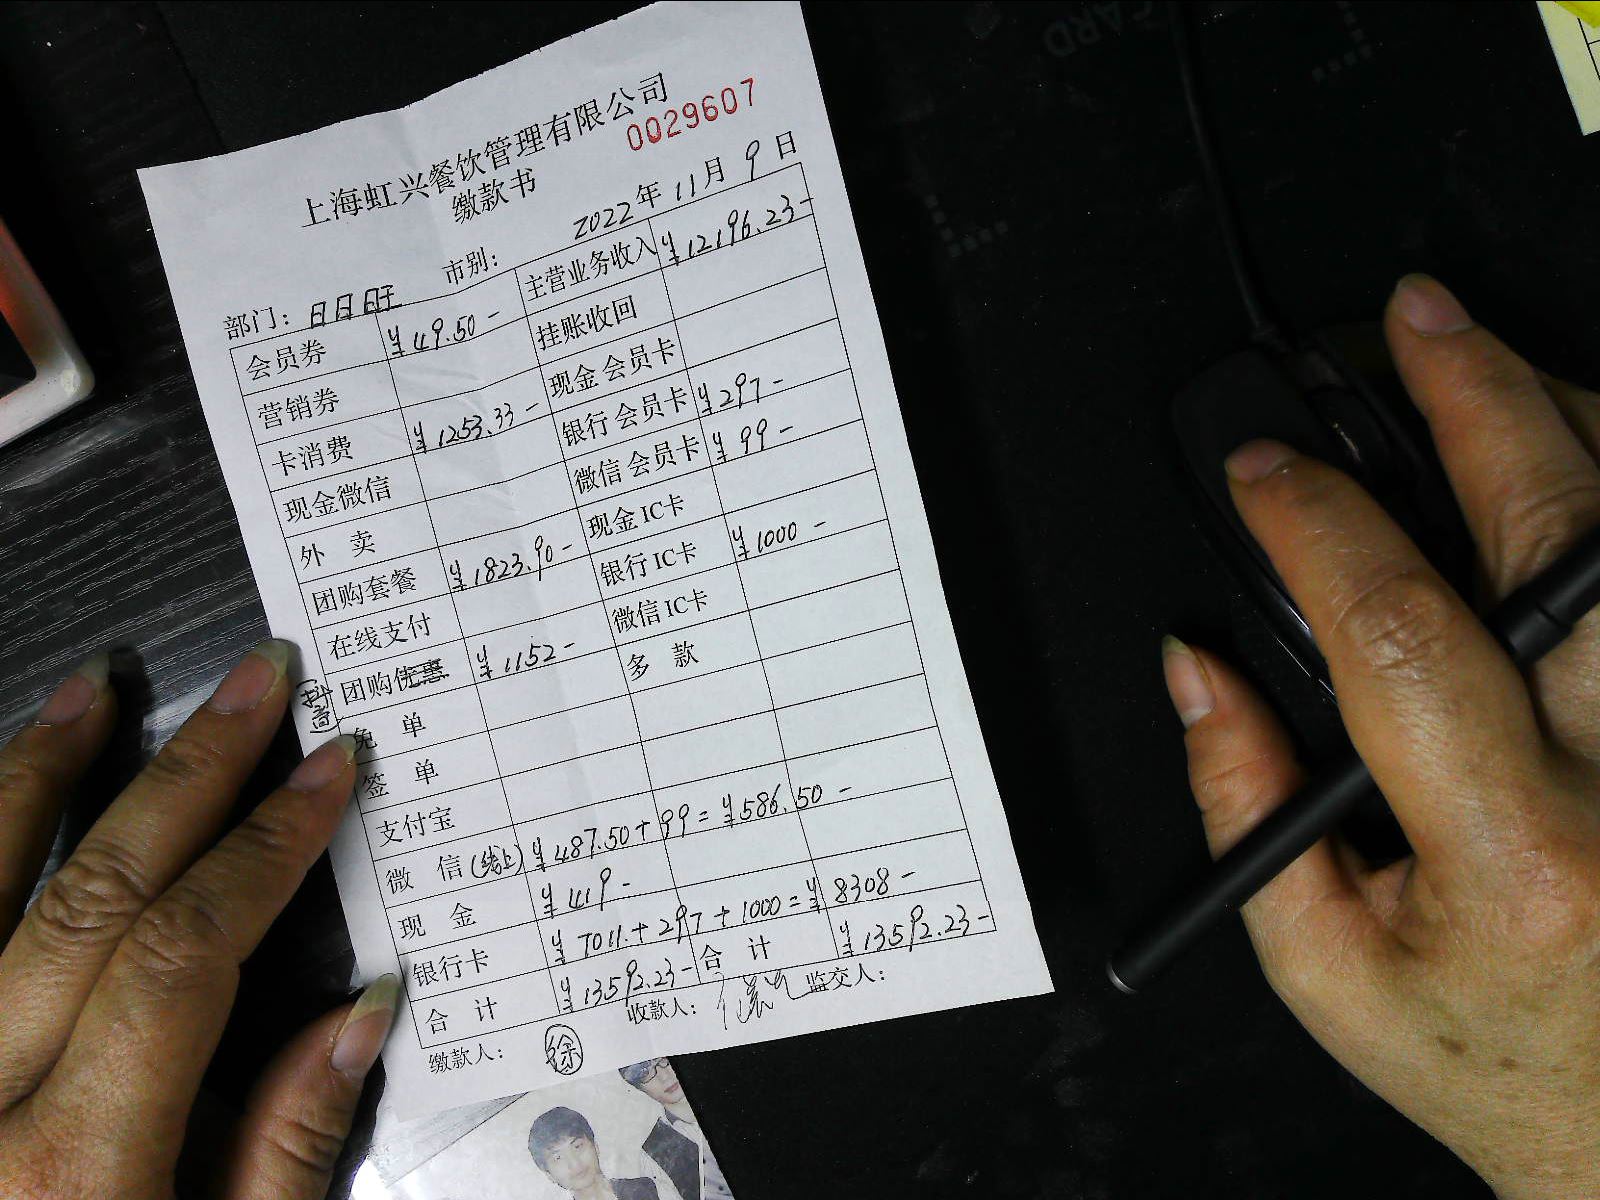 上海虹兴餐饮管理有限公司
缴款书
0029607
部门: 日日旺 市别: 2022年11月9日
会员券 ¥49.50- 主营业务收入 ¥12196.23-
营销券 挂账收回
卡消费 ¥1253.33- 现金会员卡
现金微信 银行会员卡 ¥297-
外 卖 微信会员卡 ¥99-
团购套餐 ¥1823.90- 现金IC卡
在线支付 银行IC卡 ¥1000-
团购优惠 (抖音) ¥1152- 微信IC卡
免 单 多 款
签 单
支付宝
微 信(线上) ¥487.50+99=¥586.50-
现 金 ¥419-
银行卡 ¥7011.+297+1000=¥8308-
合 计 ¥13592.23- 合 计 ¥13592.23-
缴款人: 徐 收款人: 监交人:
CARD